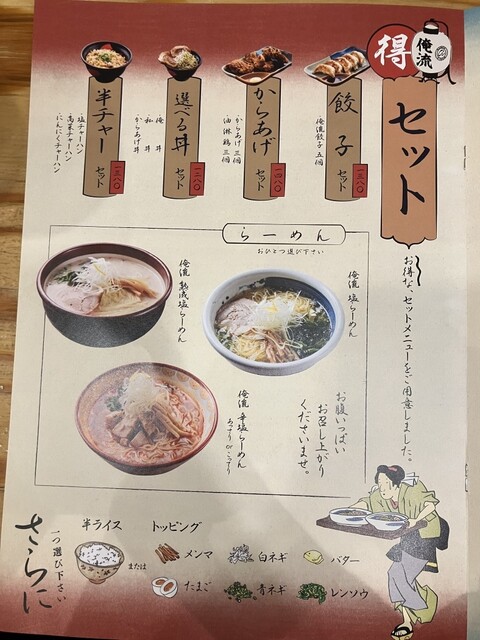 得
俺流
セット
お得な、セットメニューをご用意しました。
餃子
セット
一三八〇
俺流餃子 五個
からあげ
セット
一四八〇
からあげ 三個
油淋鶏 三個
選べる丼
セット
俺丼
和丼
からあげ丼
半チャー
セット
一三八〇
塩チャーハン
高菜チャーハン
にんにくチャーハン
らーめん
おひとつ選び下さい
俺流 塩らーめん
俺流 熟成塩らーめん
俺流 辛塩らーめん
あっさりorこってり
お腹いっぱい
お召し上がり
くださいませ。
さらに
一つ選び下さい
半ライス
または
トッピング
メンマ
白ネギ
バター
たまご
青ネギ
レンソウ